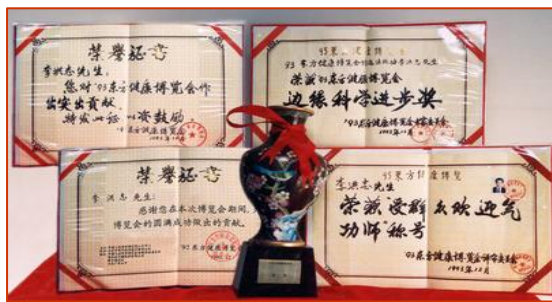 荣誉证书
李洪志先生：
您对'93东方健康博览会作
出突出贡献，
特发此证，以资鼓励。
'93东方健康博览会
1993.12月
93东方健康博览会
李洪志先生
荣获'93东方健康博览会
边缘科学进步奖
'93东方健康博览会评审委员会
1993年12月
荣誉证书
李洪志先生：
感谢您在本次博览会期间，
博览会的圆满成功做出的贡献。
'93东方健康博览会
93东方健康博览
李洪志先生
荣获受群众欢迎气
功师称号
'93东方健康博览会评审委员会
1993年12月